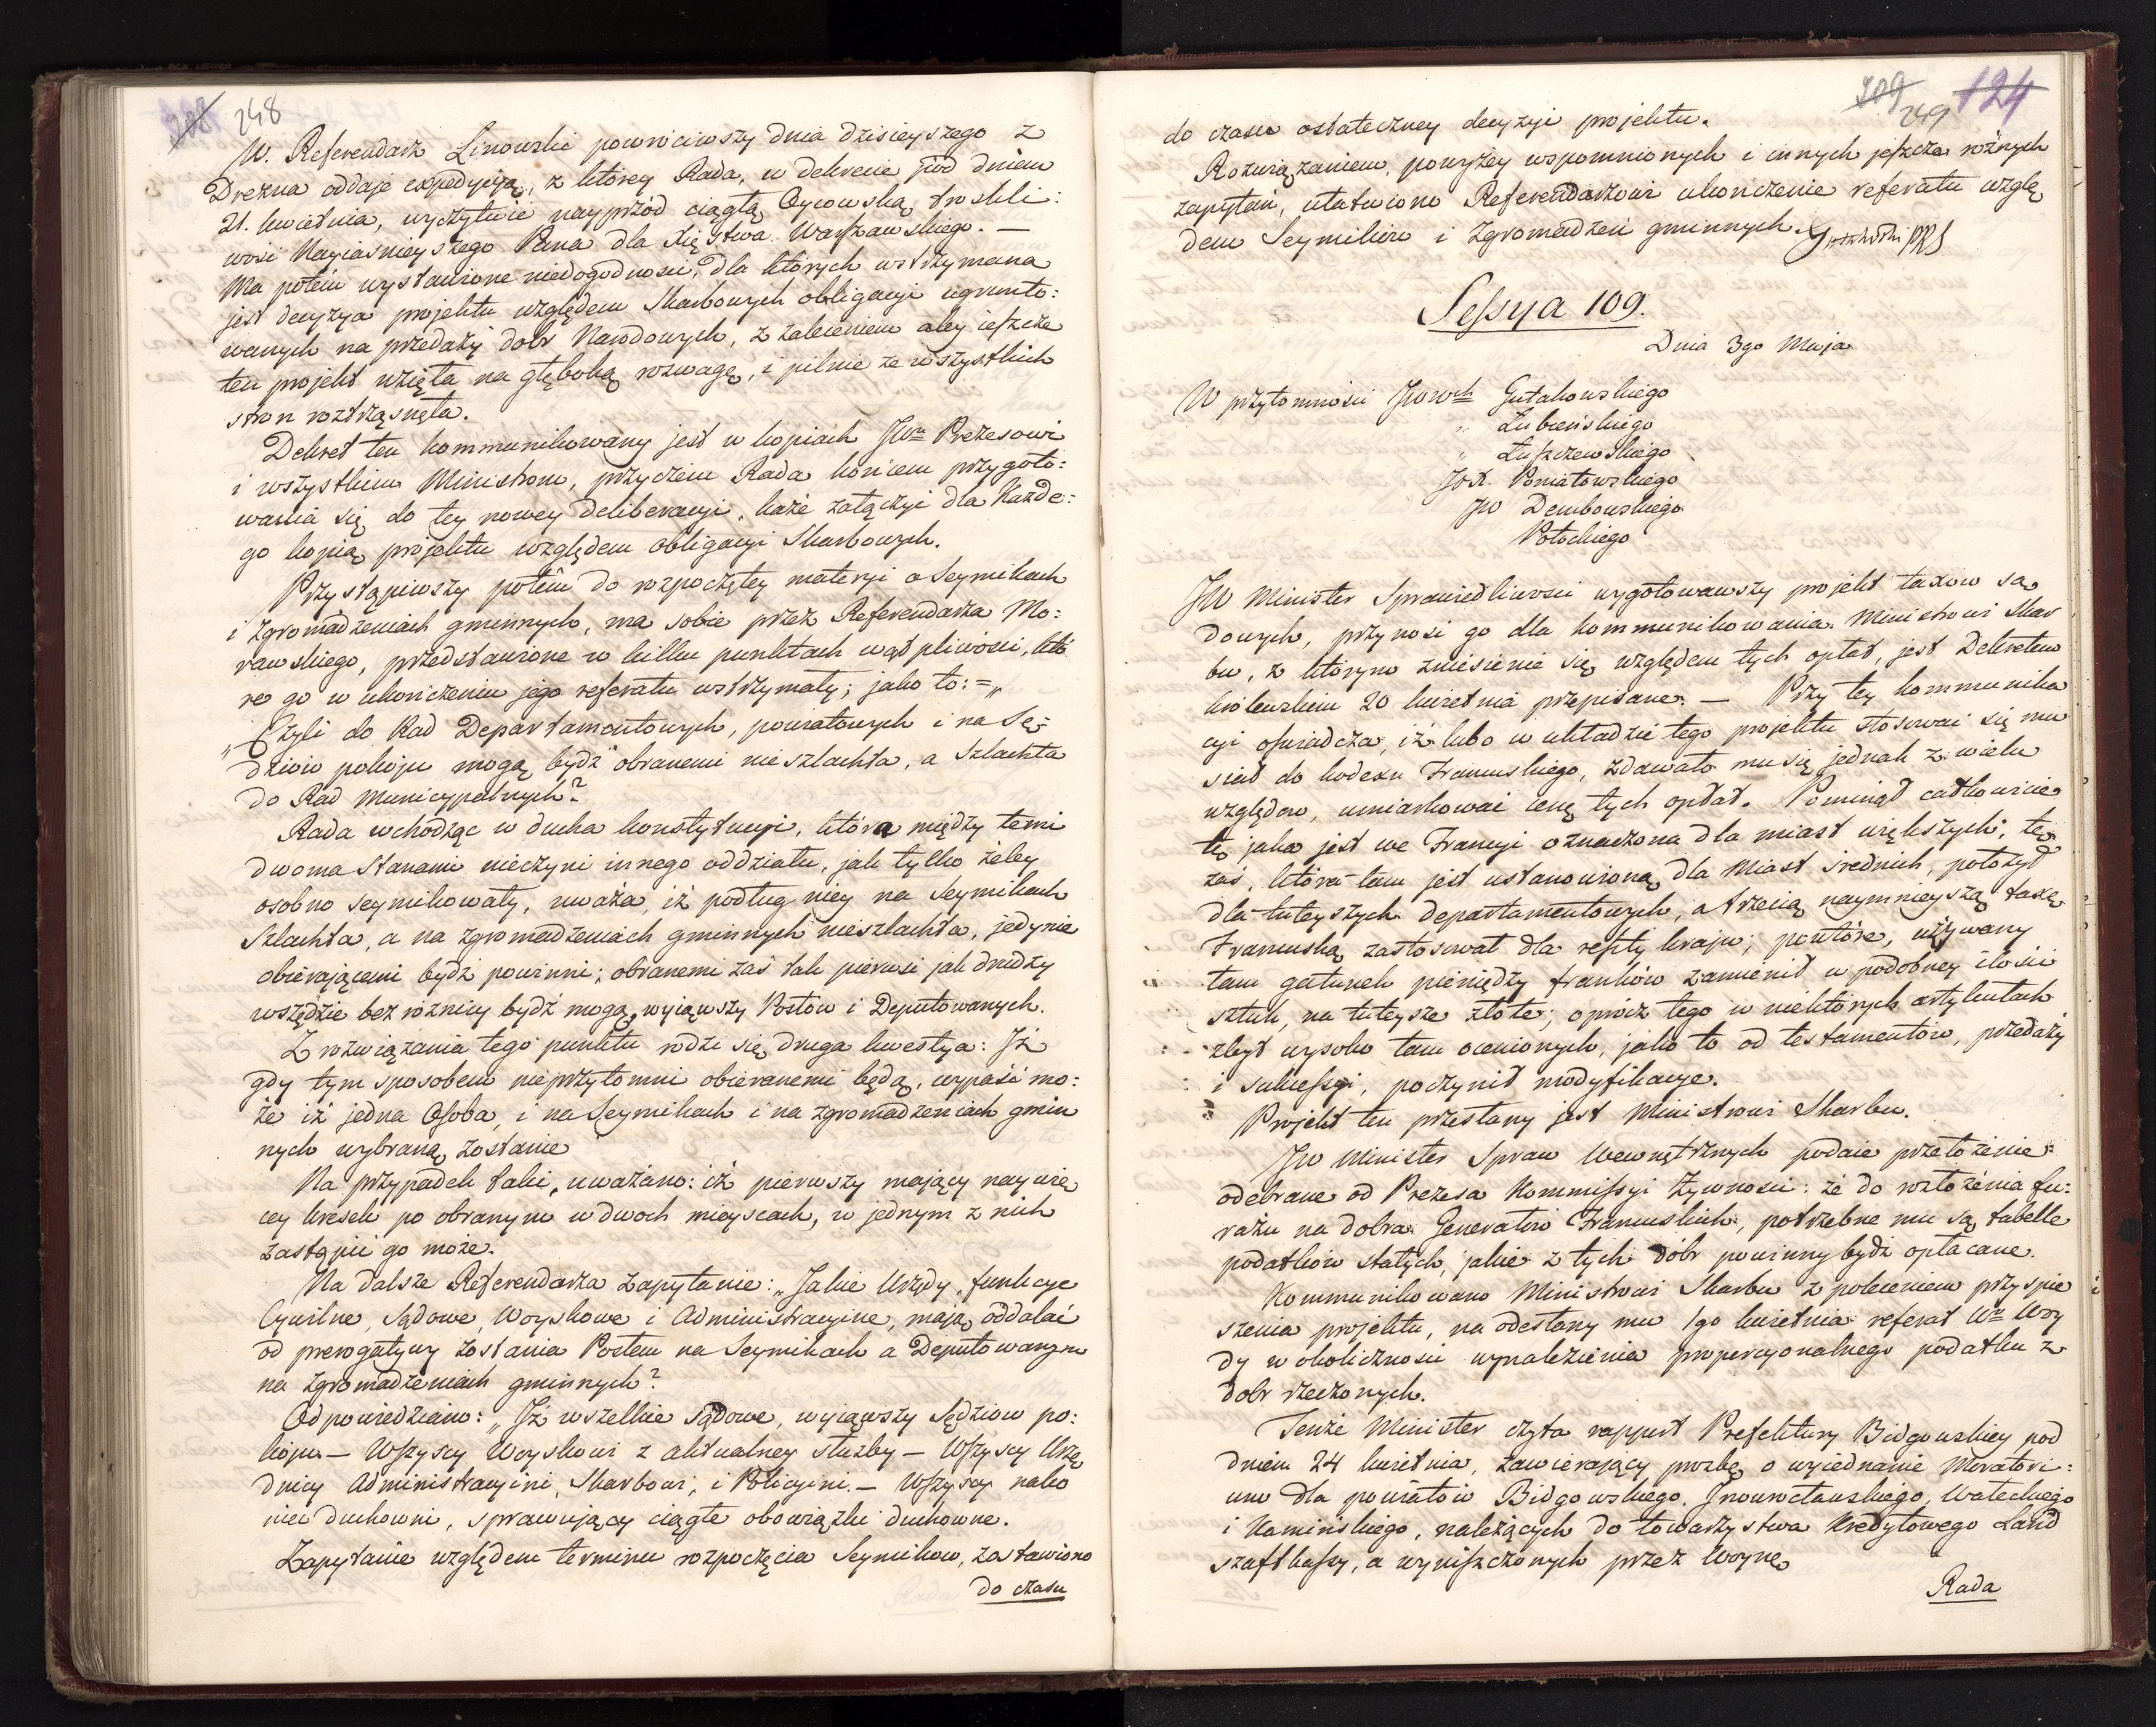 248
W. Referendarz Linowski powróciwszy dnia dzisieyszego z
Drezna oddaje expedycyą, z którey Rada, w dekrecie pod dniem
21. kwietnia, wyczytuie nayprzód ciągłą Oycowską troskli:
wość Nayiaśnieyszego Pana dla Xięstwa Warszawskiego. —
Ma potém wystawione niedogodności, dla których wstrzymana
jest decyzya projektu względem Skarbowych obligacyi ugrunto:
wanych na przedaży dóbr Narodowych, z zaleceniem aby ieszcze
ten projekt wzięła na głęboką rozwagę, i pilnie ze wszystkich
stron roztrząsnęła.
Dekret ten kommunikowany jest w kopiach JWu Prezesowi
i wszystkim Ministrom, przyczém Rada końcem przygoto:
wania się do tey nowey deliberacyi, każe załączyć dla każde:
go kopią projektu względem obligacyi Skarbowych.
Przystąpiwszy potém do rozpoczętey materyi o Seymikach
i zgromadzeniach gminnych, ma sobie przez Referendarza Mo:
rawskiego, przedstawione w kilku punktach wątpliwości, któ
re go w ukończeniu jego referatu wstrzymały; jako to: = „
„Czyli do Rad Departamentowych, powiatowych i na Sę=
dziów pokoju mogą bydź obranemi nieszlachta, a Szlachta
do Rad Municypalnych?
Rada wchodząc w ducha konstytucyi, która między temi
dwoma Stanami nieczyni innego oddziału, jak tylko żeby
osobno seymikowały, uważa, iż podług niey na Seymikach
Szlachta, a na zgromadzeniach gminnych nieszlachta, jedynie
obierającemi bydź powinni; obranemi zaś tak pierwsi jak drudzy
wszędzie bez różnicy bydź mogą, wyiąwszy Posłów i Deputowanych.
Z rozwiązania tego punktu rodzi się druga kwestya: Iż
gdy tym sposobem nieprzytomni obieranemi będą, wypaść mo:
że iż jedna Osoba, i na Seymikach i na zgromadzeniach gmin
nych wybraną zostanie
Na przypadek taki, uważano: iż pierwszy mający naywię
cey kresek po obranym w dwóch mieyscach, w jednym z nich
zastąpić go może.
Na dalsze Referendarza zapytanie: „Jakie Urzędy, funkcye
Cywilne, Sądowe, Woyskowe i Administracyine, mają oddalać
od prerogatywy zostania Posłem na Seymikach a Deputowanym
na zgromadzeniach gminnych?
Odpowiedziano: „Iż wszelkie sądowe, wyiąwszy Sędziów po:
koju — Wszyscy Woyskowi z aktualney służby — Wszyscy Urzę
dnicy Administracyini, Skarbowi, i Policyini. — Wszyscy nako
niec duchowni, sprawujący ciągłe obowiązki duchowne.
Zapytanie względem terminu rozpoczęcia Seymików, zostawiono
do czasu
109 249 124
do czasu ostateczney decyzyi projektu.
Rozwiązaniem, powyżey wspomnionych i innych jeszcze różnych
zapytań, ułatwiono Referendarzowi ukończenie referatu wzglę
dem Seymików i Zgromadzeń gminnych.
Sessya 109.
Dnia 3go Maja
W przytomności JWWch Gutakowskiego
„ Łubieńskiego
„ Łuszczewskiego
JOX. Poniatowskiego
JW Dembowskiego
Potockiego
JW Minister Sprawiedliwości wygotowawszy projekt taxów są
dowych, przynosi go dla kommunikowania Ministrowi Skar
bu, z którym zniesienie się względem tych opłat, jest Dekretem
królewskim 20 kwietnia przepisane. — Przy tey kommunika
cyi oświadcza, iż lubo w układzie tego projektu stosować się mu
siał do kodexu Francuskiego, zdawało mu się jednak z wielu
względów, umiarkować cenę tych opłat. Pominął całkowicie
tę jaka jest we Francyi oznaczona dla miast większych; tę
zaś, która tam jest ustanowioną dla Miast średnich, położył
dla tuteyszych departamentowych, a trzecią naymnieyszą taxę
Francuską zastosował dla reszty kraju; powtóre, używany
tam gatunek pieniędzy franków zamienił w podobney ilości
sztuk, na tuteysze złote; oprócz tego w niektórych artykułach
zbyt wysoko tam ocenionych, jako to od testamentów, przedaży
i sukcessyi, poczynił modyfikacye.
Projekt ten przesłany jest Ministrowi Skarbu.
JW Minister Spraw Wewnętrznych podaie przełożenie
odebrane od Prezesa Kommissyi Żywności: że do rozłożenia fu:
rażu na dobra Generałów Francuskich, potrzebne mu są tabelle
podatków stałych, jakie z tych dóbr powinny bydź opłacane.
Kommunikowano Ministrowi Skarbu z poleceniem przyspie
szenia projektu, na odesłany mu 1go kwietnia referat Wo Woy
dy w okoliczności wynalezienia proporcyonalnego podatku z
dóbr rzeczonych.
Tenże Minister czyta rapport Prefektury Bidgoskiey pod
dniem 24 kwietnia, zawierający prozbę o wyiednanie Moratori:
um dla powiatów Bidgoskiego, Inowrocławskiego, Wałeckiego
i Kamińskiego, należących do towarzystwa kredytowego Land
szaftkassy, a wyniszczonych przez Woynę
Rada